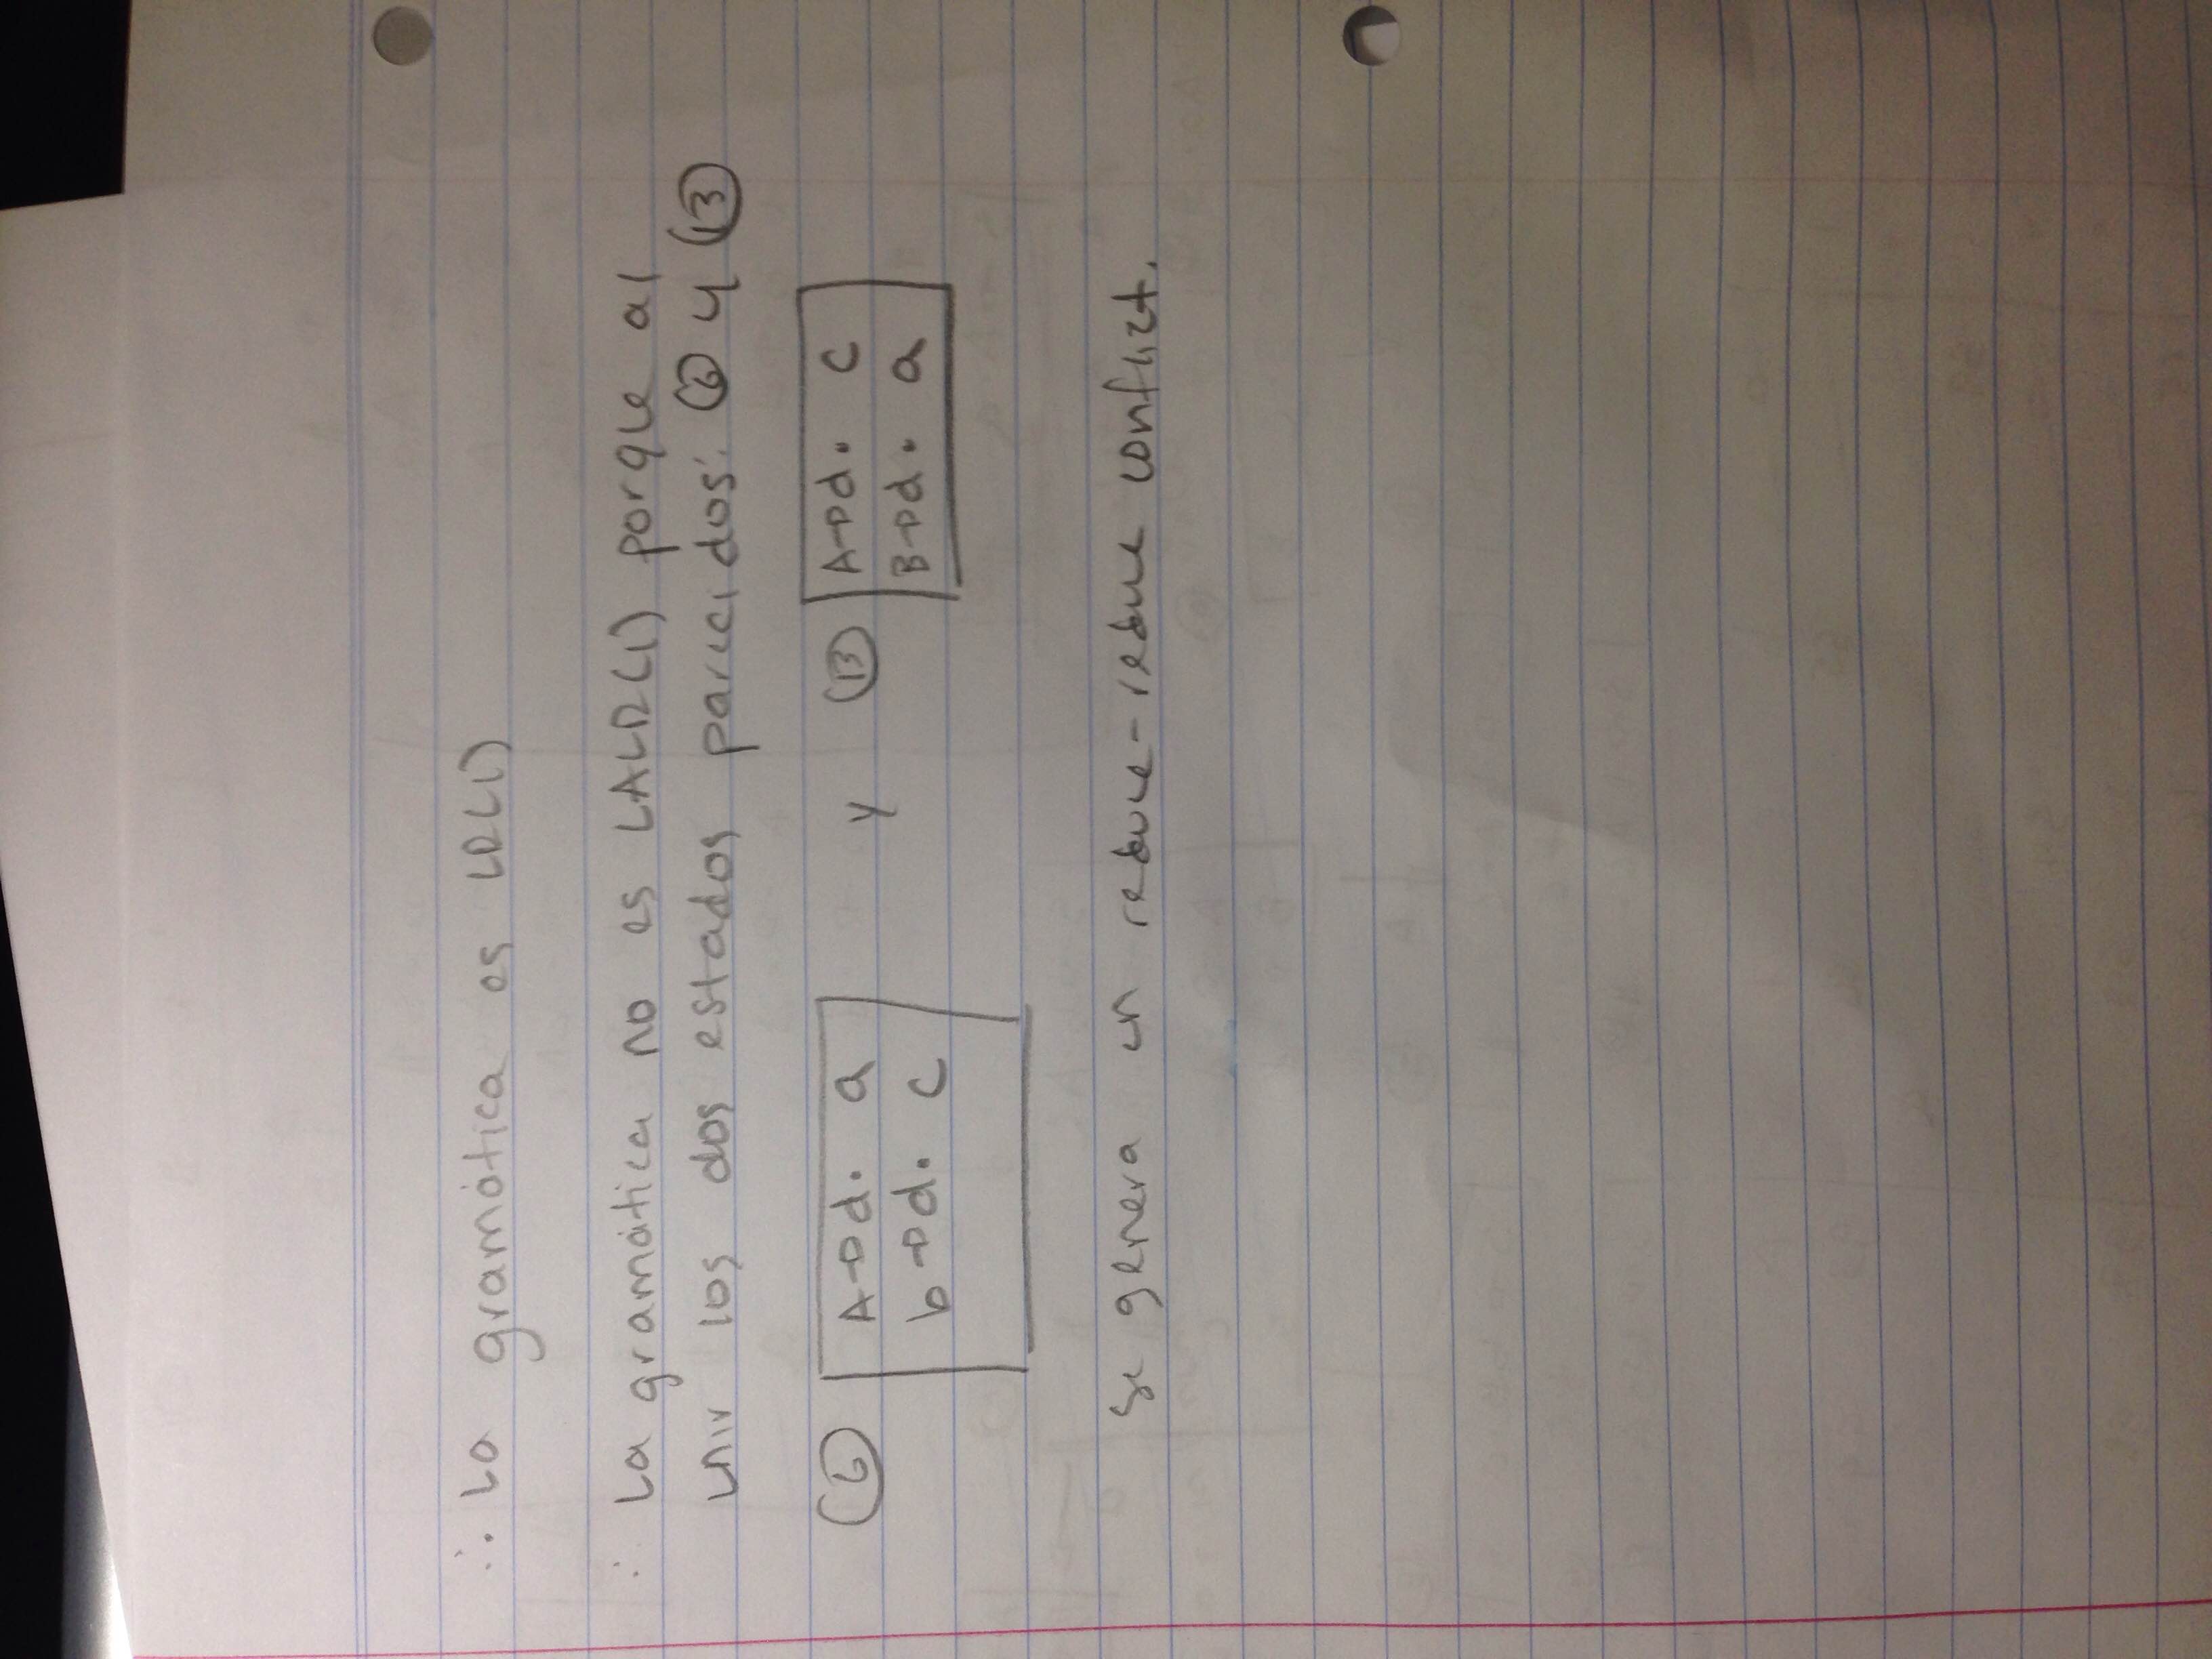 ∴ La gramática es LR(1)
∴ La gramática no es LALR(1) porque al
unir los dos estados parecidos: ⑥ y ⑬
⑥ A→d. a y ⑬ A→d. c
b→d. c B→d. a
se genera un reduce-reduce conflict.